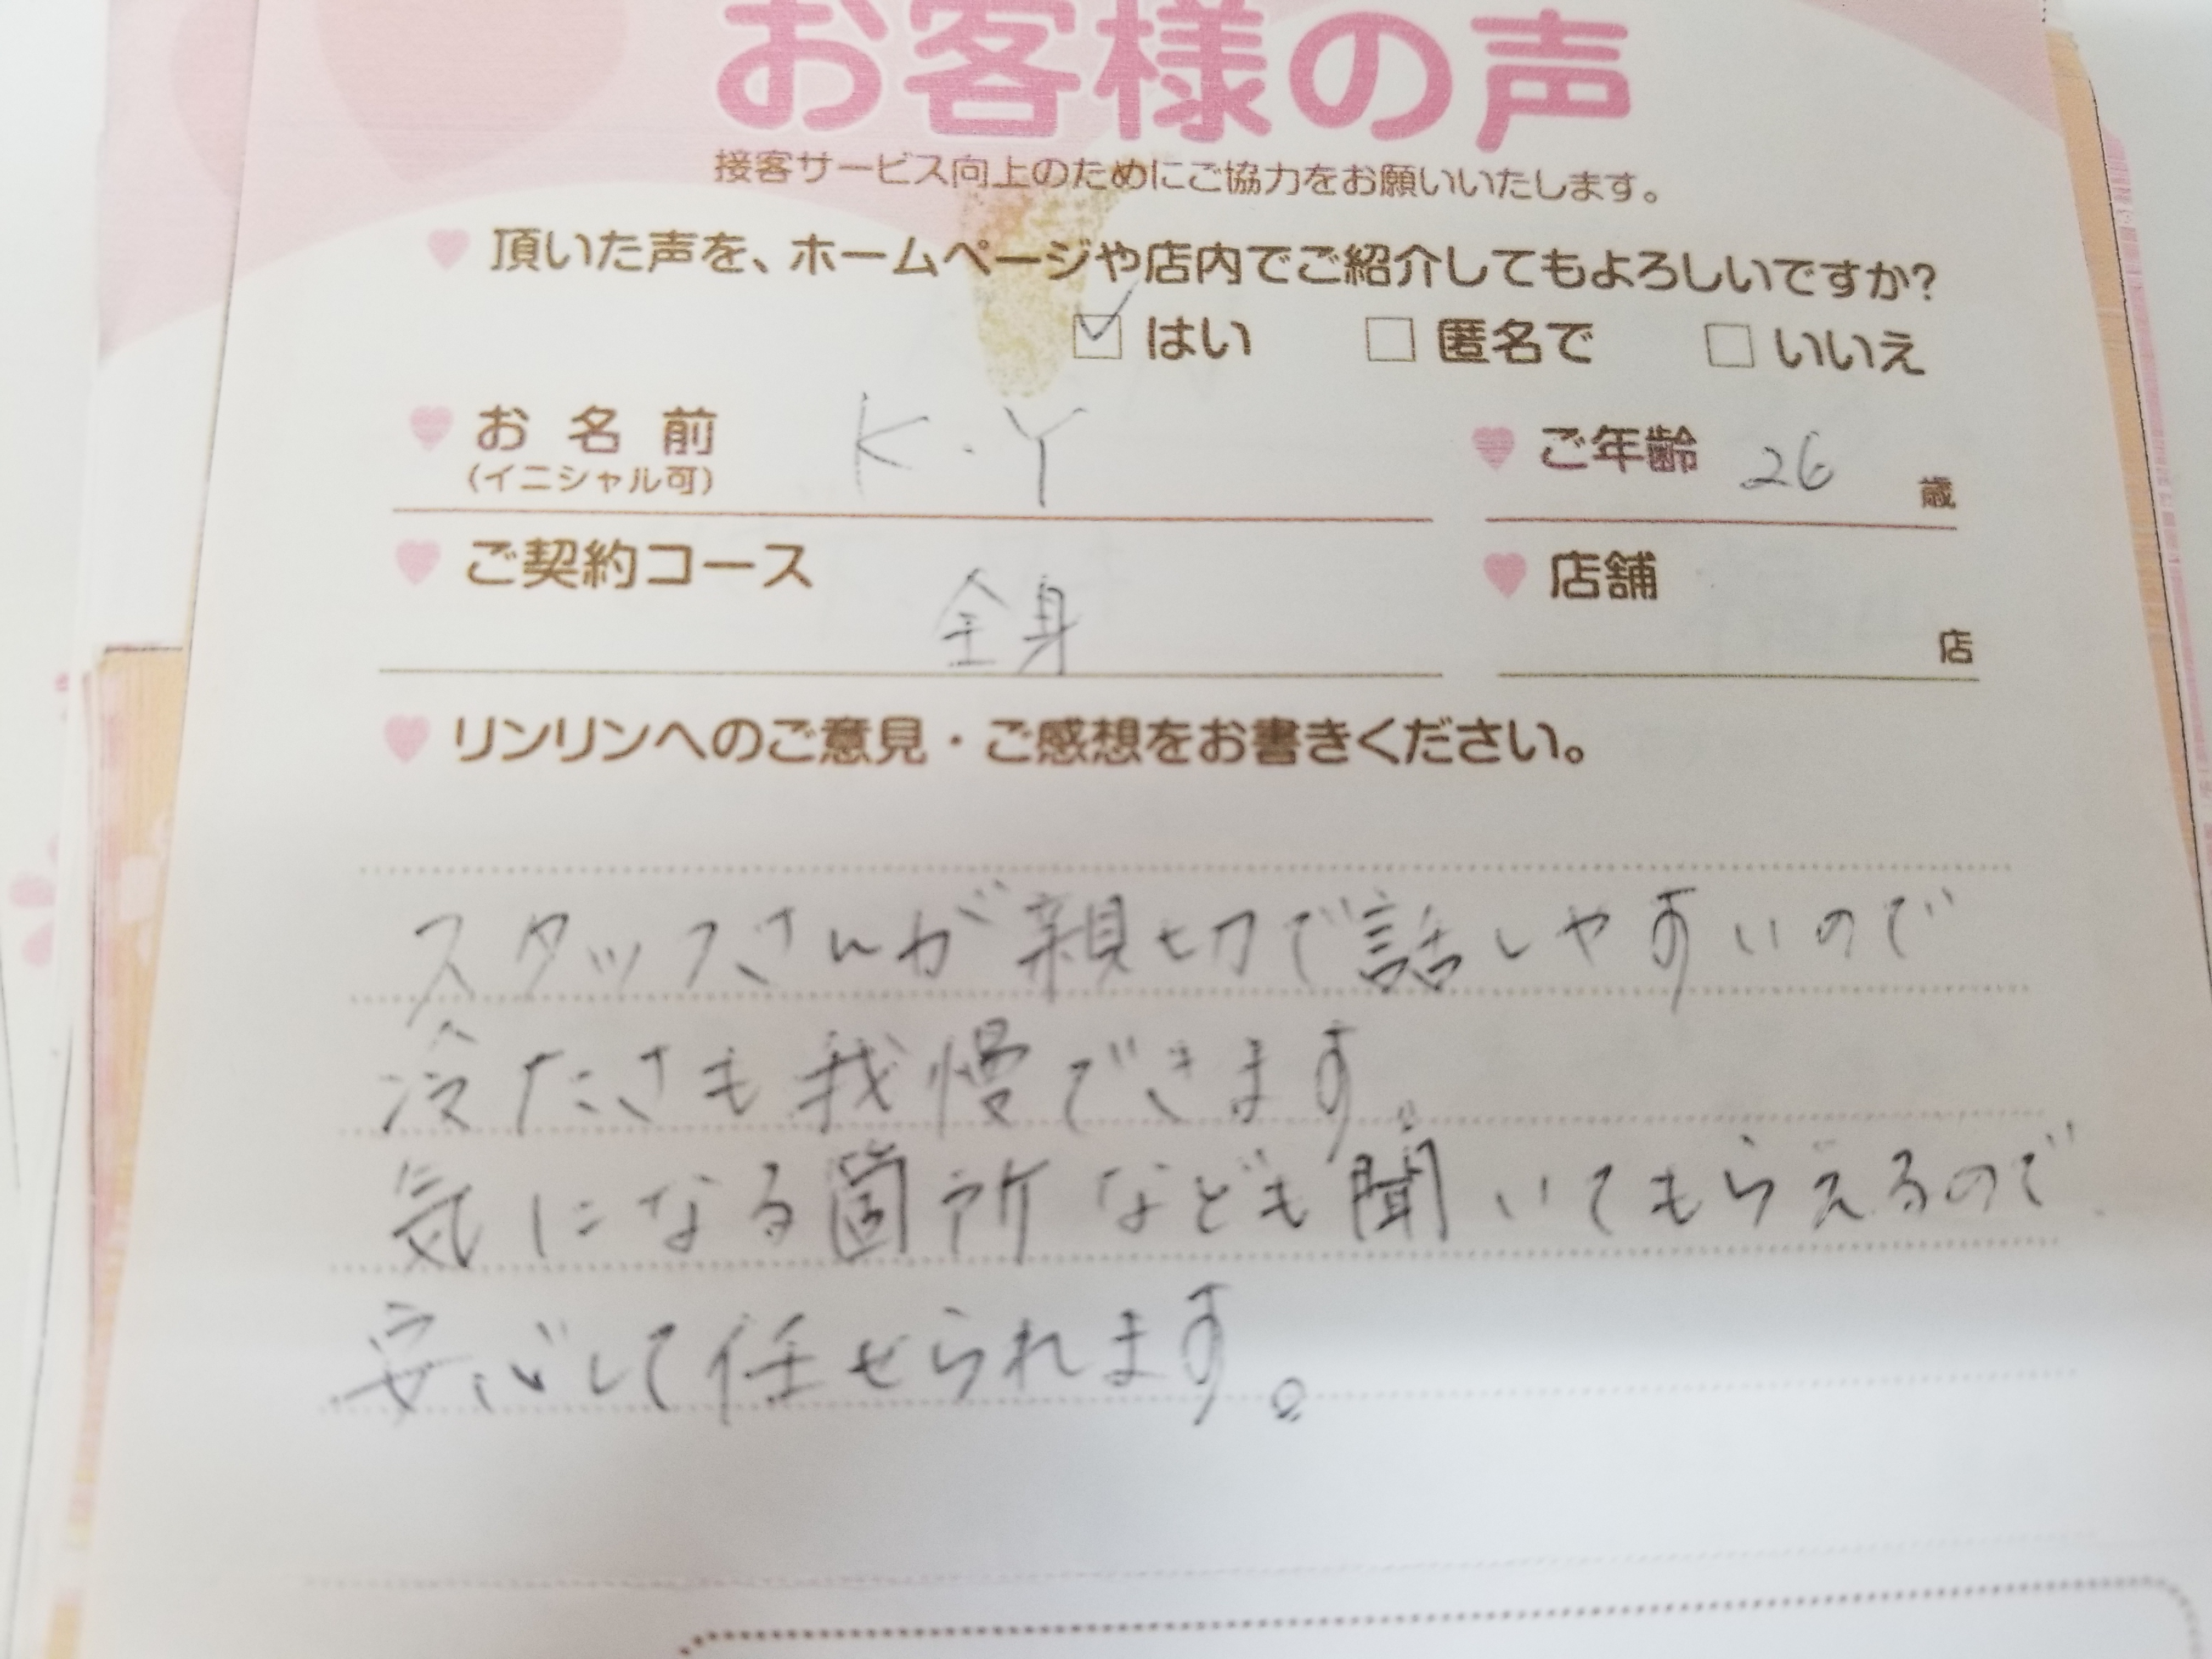 お客様の声
接客サービス向上のためにご協力をお願いいたします。
頂いた声を、ホームページや店内でご紹介してもよろしいですか?
はい 匿名で いいえ
お名前 K・Y ご年齢 26 歳
(イニシャル可)
ご契約コース 全身 店舗 店
リンリンへのご意見・ご感想をお書きください。
スタッフさんが親切で話しやすいので
冷たさも我慢できます。
気になる箇所なども聞いてもらえるので
安心して任せられます。